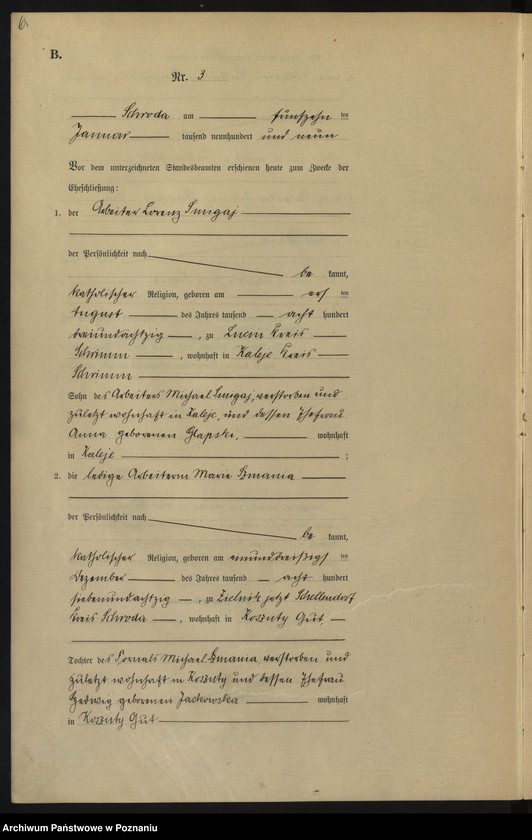 B.
Nr. 3
Schroda am fünfzehn ten
Januar tausend neunhundert und neun
Vor dem unterzeichneten Standesbeamten erschienen heute zum Zwecke der
Eheschließung:
1. der Arbeiter Lorenz
der Persönlichkeit nach
be kannt,
katholischer Religion, geboren am ten
August des Jahres tausend acht hundert
dreiundachtzig, zu Kreis
Schrimm, wohnhaft in Zaleje Kreis
Schrimm
Sohn des Arbeiters Michael verstorben und
zuletzt wohnhaft in Zaleje, und dessen Ehefrau
Anna geborenen Glapski, wohnhaft
in Zaleje ;
2. die ledige Arbeiterin Marie Szmania
der Persönlichkeit nach
be kannt,
katholischer Religion, geboren am einunddreißigst ten
Dezember des Jahres tausend acht hundert
siebenundachtzig, zu Zielnik jetzt Schellendorf
Kreis Schroda, wohnhaft in Koszuty Gut
Tochter des Fornals Michael Szmania, verstorben und
zuletzt wohnhaft in Koszuty und dessen Ehefrau
Hedwig geborenen Jackowska wohnhaft
in Koszuty Gut
Archiwum Państwowe w Poznaniu